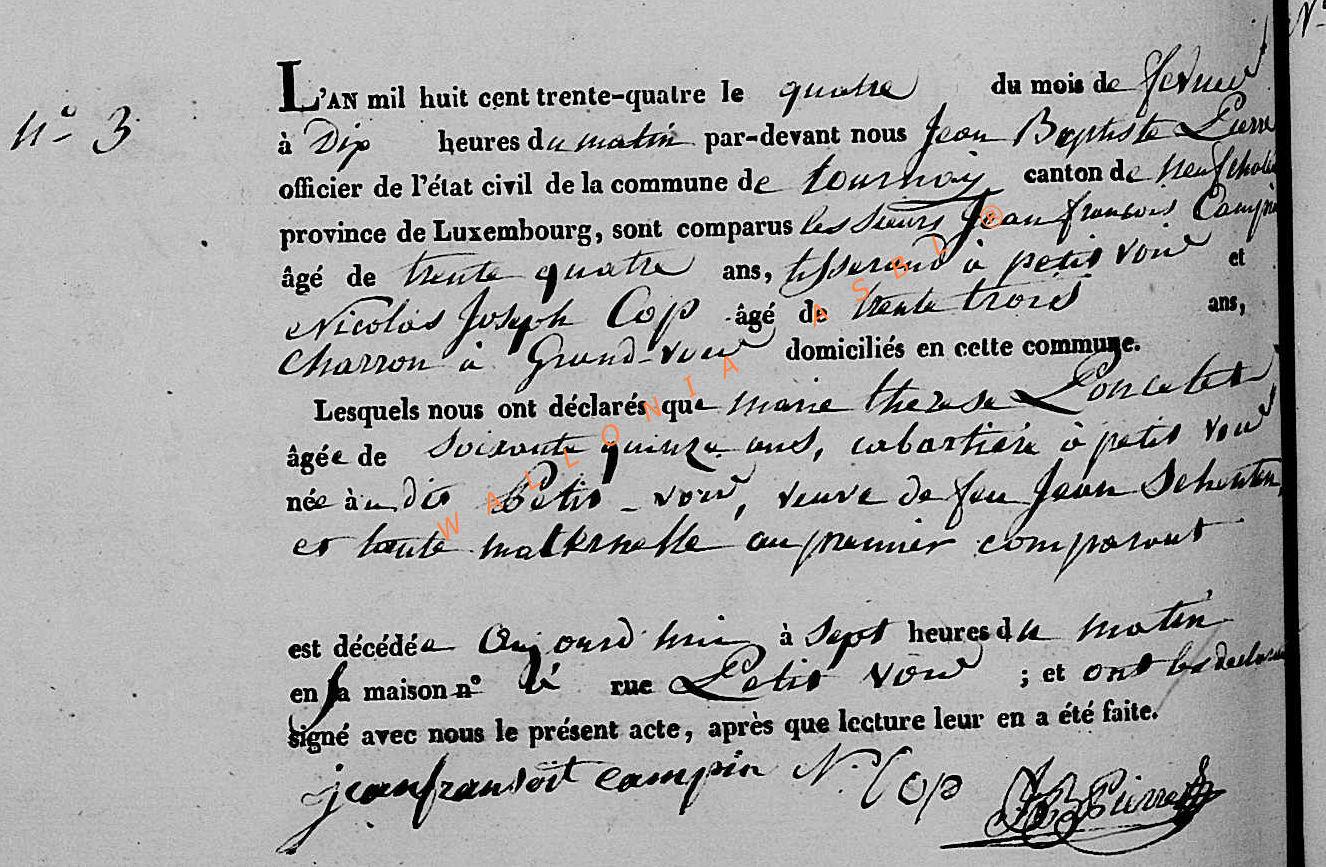 N.° 3
L'AN mil huit cent trente-quatre le quatre du mois de fevrier
à Dix heures du matin par-devant nous Jean Baptiste Pierre
officier de l'état civil de la commune de tournay canton de neufchateau
province de Luxembourg, sont comparus les sieurs Jean françois Campin
âgé de trente quatre ans, tisserand à petit voir et
Nicolas Joseph Cop âgé de trente trois ans,
Charron à Grand-voir domiciliés en cette commune.
Lesquels nous ont déclarés que marie therese
âgée de soixante quinze ans, cabartière à petit voir
née au dit Petit-voir, veuve de feu Jean
et tante maternelle au premier comparant
est décédée Aujourd'hui à sept heures du matin
en sa maison n° rue Petit voir ; et ont les declarans
signé avec nous le présent acte, après que lecture leur en a été faite.
jean fransoit campin N. Cop JB Pierre
WALLONIA ASBL ®